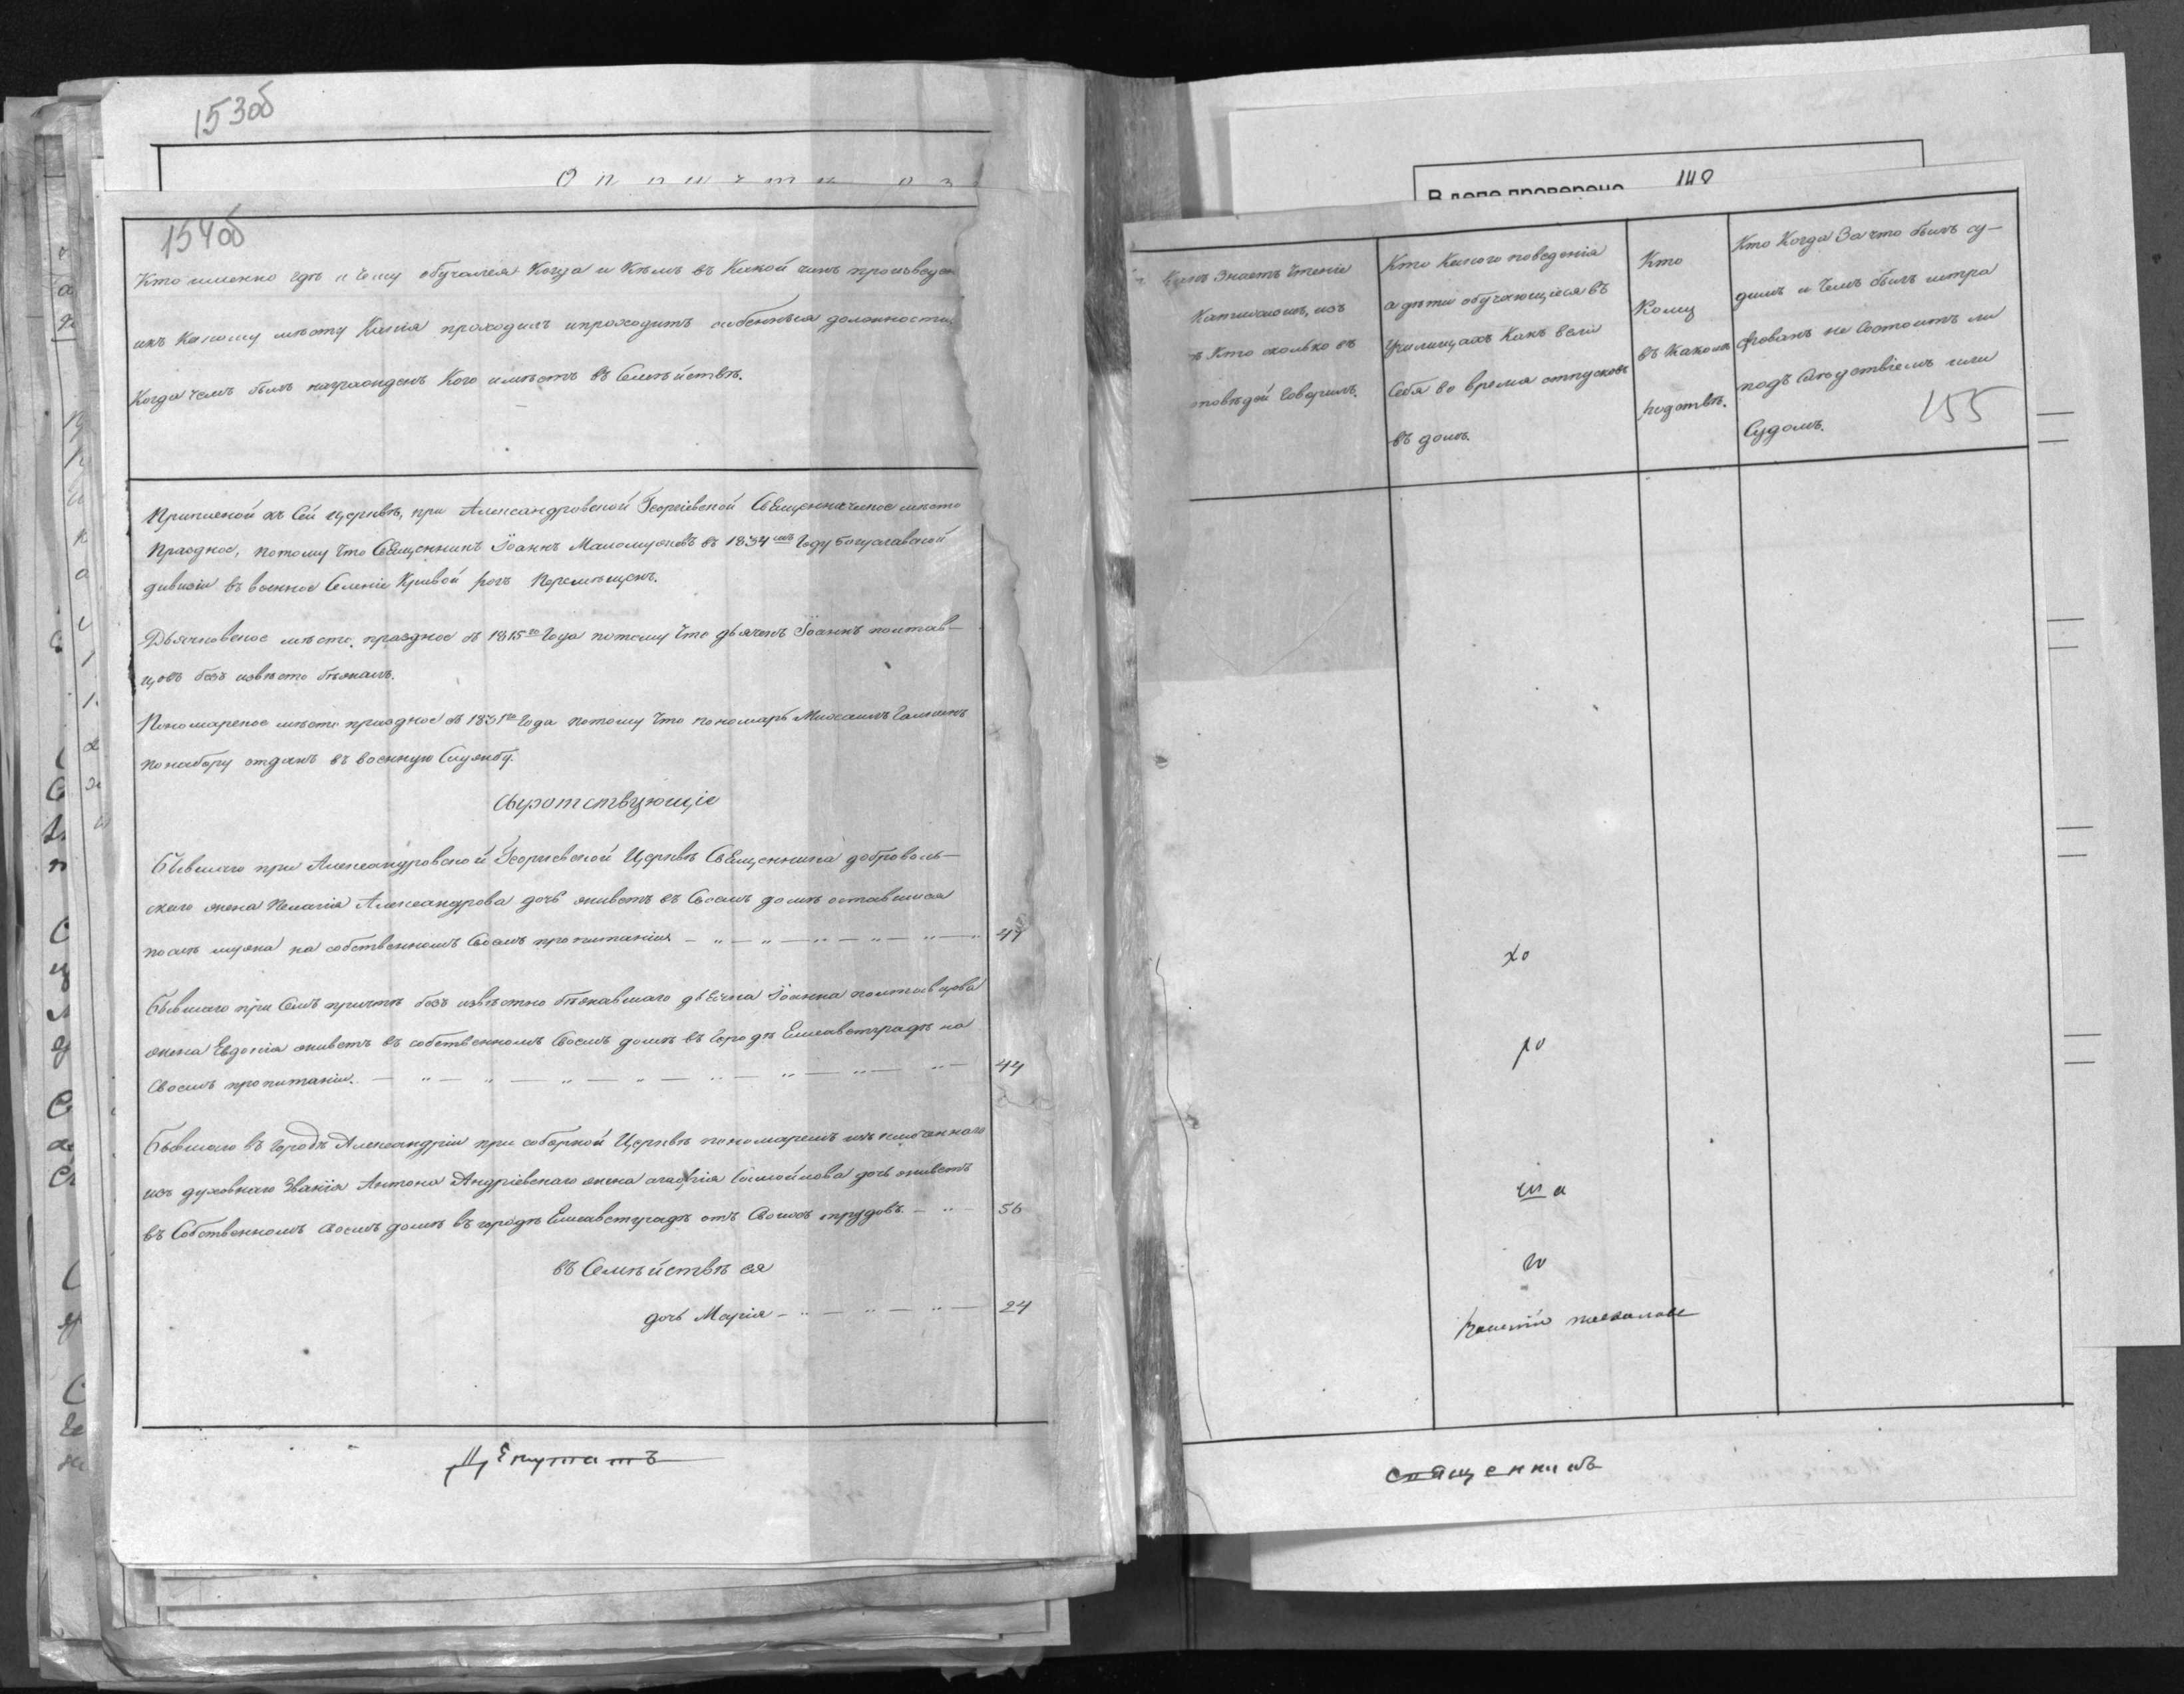 153об
Опи
154об
Кто именно гдѣ и чему обучался когда и кѣмъ въ какой чинъ произведен
икъ какому мѣсту какія проходилъ ипроходитъ особенныя должности,
когда чемъ былъ награжденъ кого имѣетъ въ семѣйствѣ.
Приписной къ сей церквѣ, при Александровской Георгіевской священническое мѣсто
праздное, потому что священникъ Іоаннъ въ 1834мъ году
дивизіи въ военное селеніе Кривой рогъ перемѣщенъ.
Дьячковское мѣсто праздное съ 1815го года потому что дьячекъ Іоаннъ полтав-
цовъ безъ извѣсно бѣжалъ.
Пономарское мѣсто праздное съ 1831го года потому что пономарь Михаилъ
понабору отданъ въ военную службу.
Сыротствующіе
Бывшаго при Александровской Георгіевской церквѣ священника доброволь-
скаго жена Пелагія Александрова дочь живетъ въ своемъ домѣ оставшися
послѣ мужа на собственномъ своемъ пропитаніи 47
Бывшаго при семъ причтѣ безъ извѣстно бѣжавшаго дьячка Іоанна полтавцова
жена Евдокія живетъ въ собственномъ своемъ домѣ въ городѣ Елисаветградѣ на
своемъ пропитаніи. 44
Бывшаго въ городѣ Александріи при соборной церквѣ пономаремъ исключеннаго
изъ духовнаго званія Антона Андріевскаго жена Самойлова дочь живетъ
въ собственномъ своемъ домѣ въ городѣ Елисаветградѣ отъ своихъ трудовъ. 56
въ семѣйствѣ ея
дочь Марія 24
Депутатъ
В деле проверено 148
знаетъ чтеніе
катихизисъ, изъ
Кто сколько въ
повѣдей говорилъ.
Кто какого поведенія
а дѣти обучающіеся въ
училищахъ какъ вели
себя во время отпусковъ
въ домъ.
Кто
кому
въ какомъ
родствѣ.
Кто когда за что былъ су-
димъ и чемъ былъ штра
фованъ не состоитъ ли
подъ слѣдствіемъ или
судомъ.
155
хо
ро
ша
го
священникъ